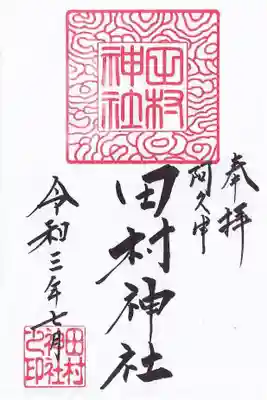 田村
神社
奉拝
田村神社
令和三年七月
田村
神社
之印